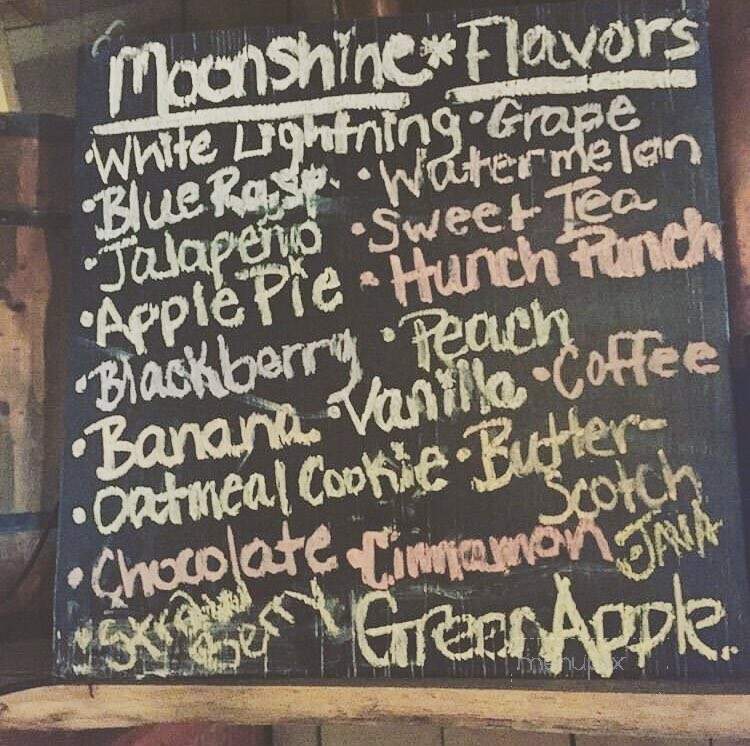 Moonshine * Flavors
• White Lightning • Grape
• Blue Rasp. • Watermelon
• Jalapeño • Sweet Tea
• Apple Pie • Hunch Punch
• Blackberry • Peach
• Banana • Vanilla • Coffee
• Oatmeal Cookie • Butter-
Scotch
• Chocolate • Cinnamon • JAVA
• Strawberry Green Apple..
menupix